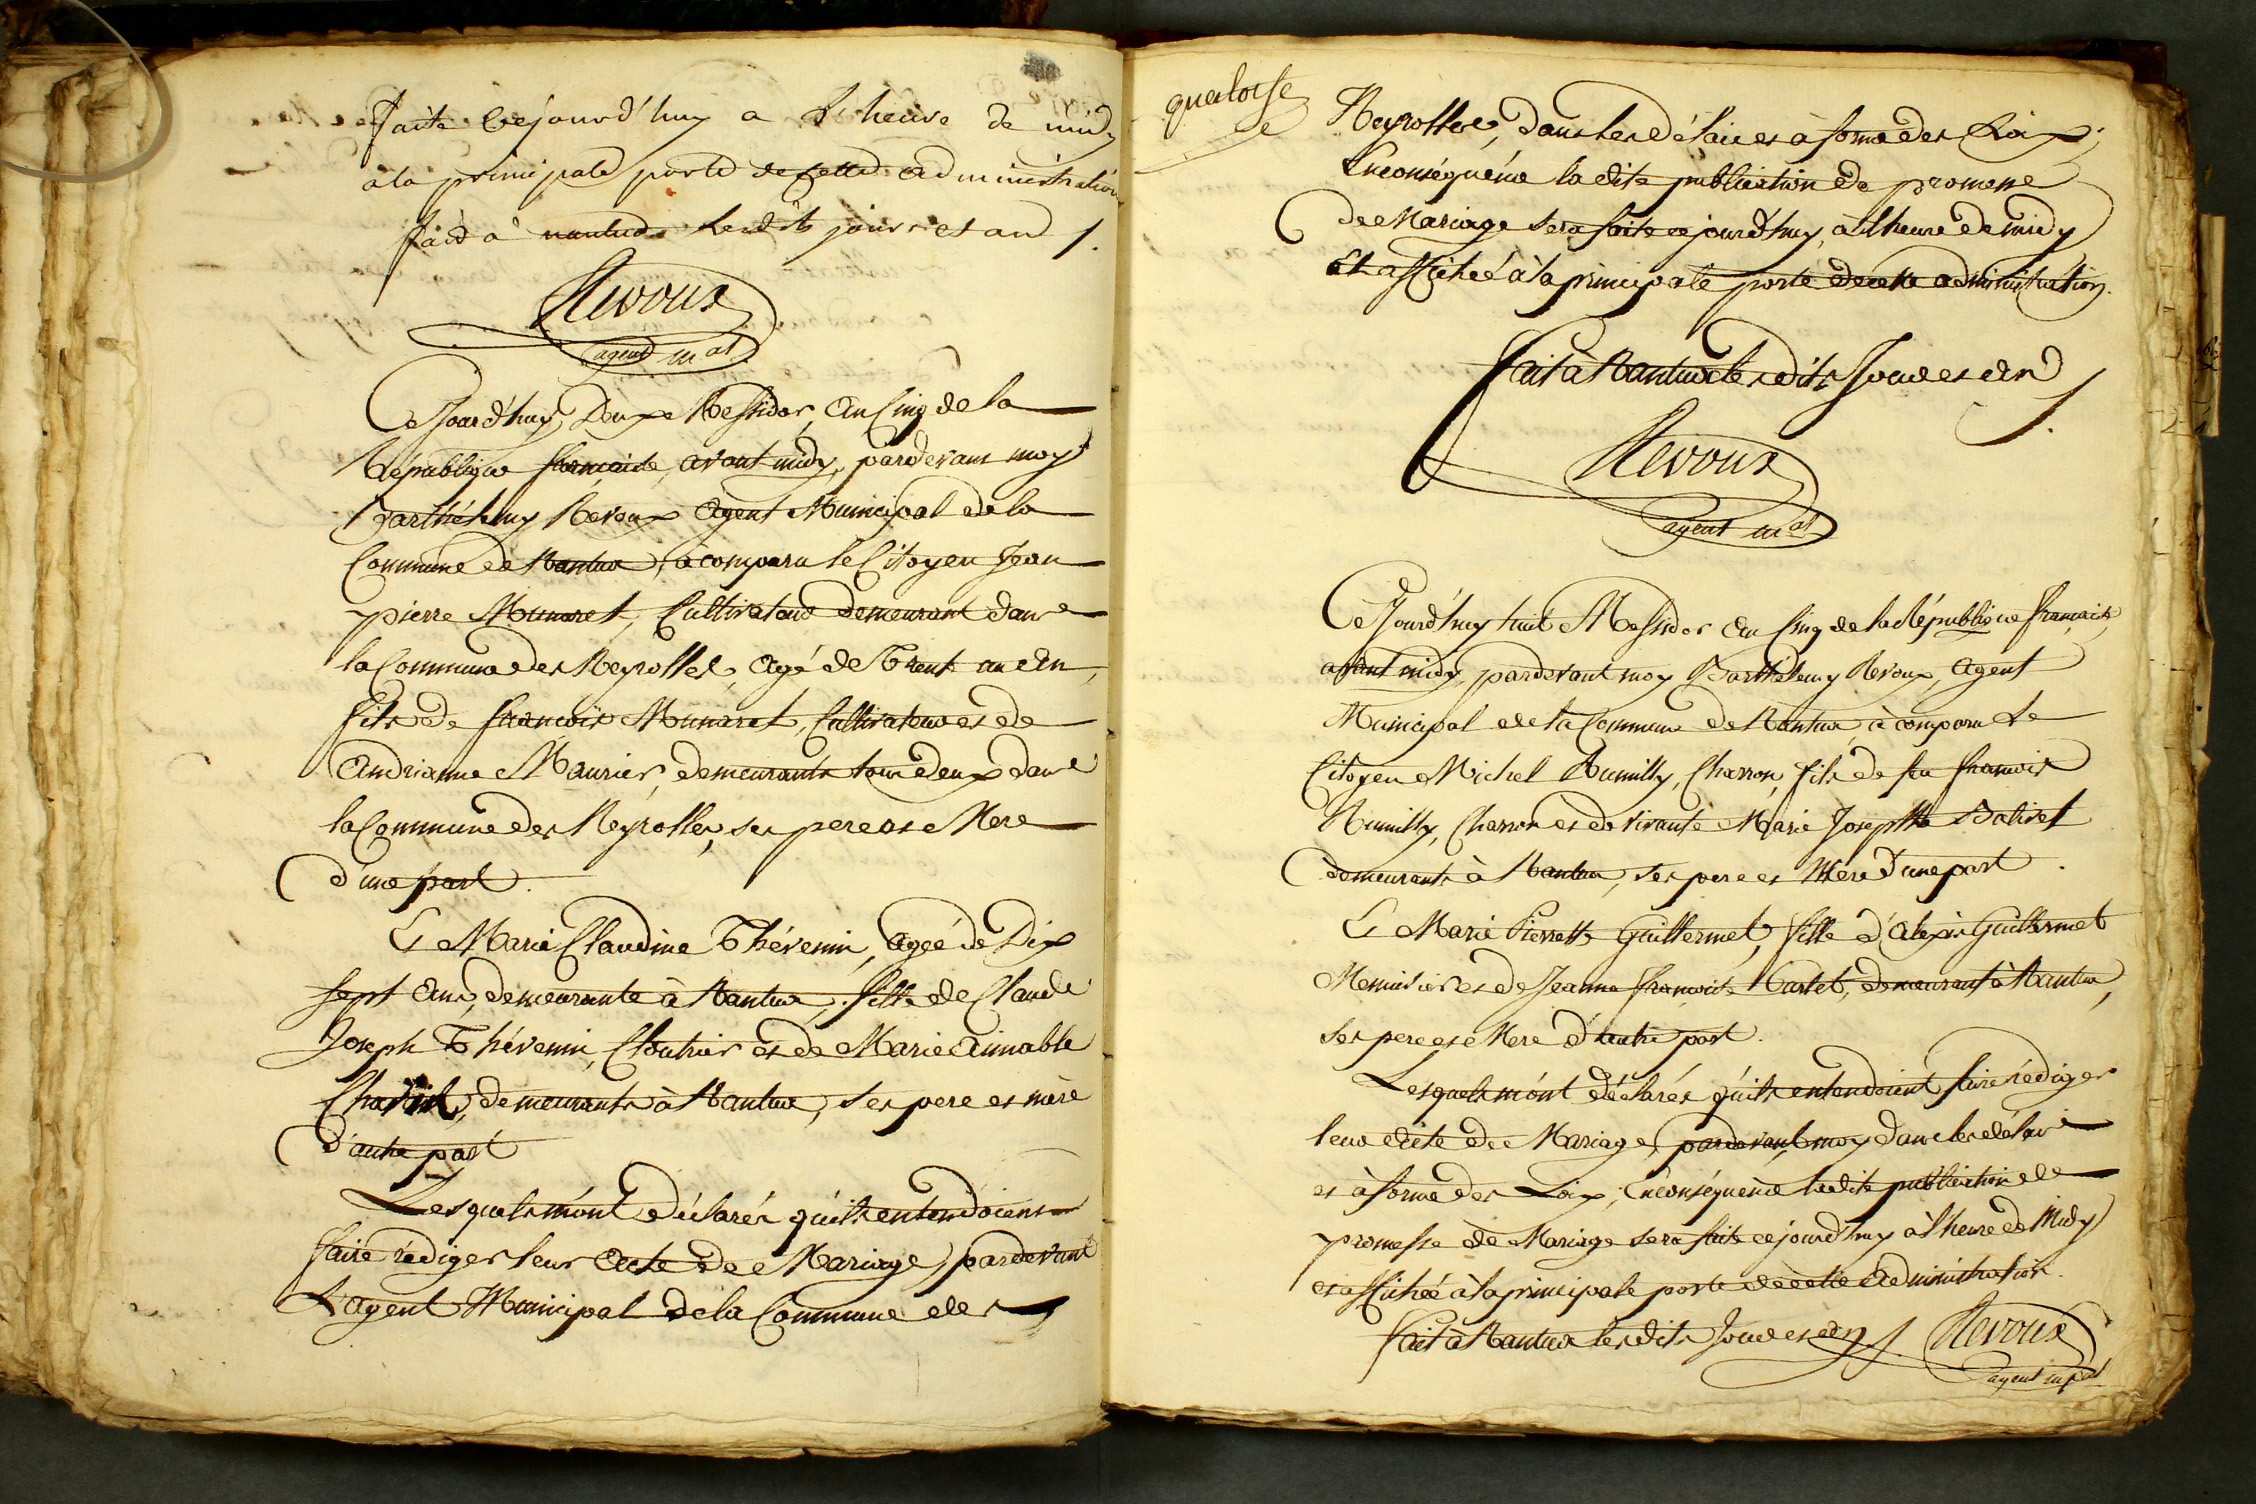 faite Cejourd'huy a L'heure de midy
à la principale porte de Cette administration
fait à nantua Lesdits jours et and /.
Revoux
agent mal
Cejourd'huy Deux Messidor, an Cinq de la
République française, avant midy, pardevant moy
Barthélemy Revoux Agent Municipal de la
Commune de Nantua, à comparu le Citoyen Jean
pierre Munaret, Cultivateur demeurant dans
la Commune des Neyrolles, Agé de Trent un An,
fils de françois Munaret, Cultivateur et de
Andrianne Maurier, demeurants tous deux dans
la Commune des Neyrolles, ses pere et Mere
d'une part.
Et Marie Claudine Thévenin, Agée de Dix
sept Ans, demeurante à Nantua, fille de Claude
Joseph Thévenin, Cloutrier et de Marie Aimable
demeurants à Nantua, ses pere et mère
d'autre part
Lesquels m'ont déclarés qu'ils entendoient
faire rédiger leur Acte de Mariage, pardevant
L'agent Municipal de la Commune des
quatorse
Neyrolles, dans les délais et à forme des Loix;
Enconséquence la dite publication de promesse
de Mariage sera faite cejourd'huy, à l'heure de midy
et affichée à la principale porte de cette administration.
fait à Nantua les dits Jour et An /.
Revoux
agent mal
Cejourd'huy huit Messidor an Cinq de la République française,
avant midy, pardevant moy Barthélemy Revoux, Agent
Municipal de la Commune de Nantua, à comparu Le
Citoyen Michel Rumilly, Charron, fils de feu françois
Rumilly, Charron et de vivante Marie Josephte Balivet
demeurants à Nantua, ses pere et Mere d'une part.
Et Marie Pierrette Guillermet, fille d'Alexis Guillermet
Menuisier et de Jeanne françoise Cartet, demeurant à Nantua,
ses pere et Mere d'autre part.
Lesquels m'ont déclarés qu'ils entendoient faire rédiger
leur Acte de Mariage, pardevant moy dans les délais
et à forme des Loix; Enconséquence la dite publication de
promesse de Mariage sera faite cejourd'huy à l'heure de Midy
et affichée à la principale porte de cette Administration.
fait à Nantua les dits Jour et an /. Revoux
agent mpal